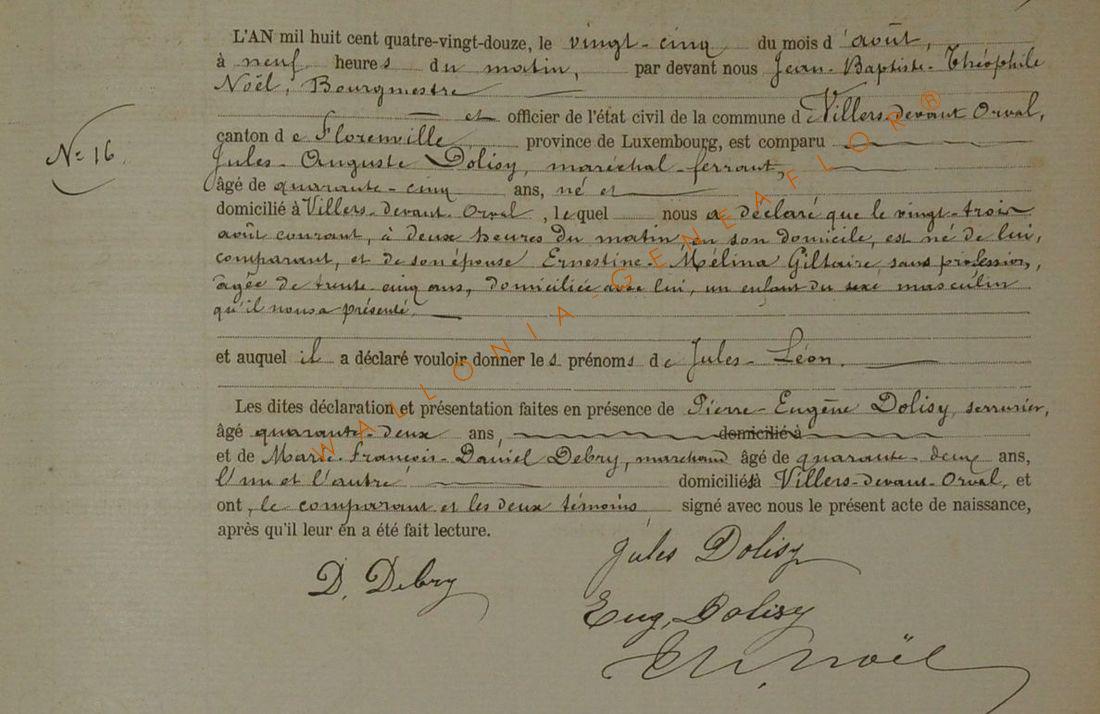 L'AN mil huit cent quatre-vingt-douze, le vingt-cinq du mois d'août,
à neuf heures du matin, par devant nous Jean-Baptiste-Théophile
Noël, Bourgmestre
et officier de l'état civil de la commune d Villers-devant Orval,
N° 16.
canton de Florenville, province de Luxembourg, est comparu
Jules-Auguste Dolisy, maréchal-ferrant,
âgé de quarante-cinq ans, né et
domicilié à Villers-devant Orval, lequel nous a déclaré que le vingt-trois
août courant, à deux heures du matin en son domicile, est né de lui,
comparant, et de son épouse Ernestine-Mélina Giltaire, sans profession,
âgée de trente-cinq ans, domiciliée avec lui, un enfant du sexe masculin
qu'il nous a présenté.
et auquel il a déclaré vouloir donner les prénoms de Jules-Léon.
Les dites déclaration et présentation faites en présence de Pierre-Eugène Dolisy, serrurier,
âgé quarante-deux ans, domicilié à
et de Marie-François-Daniel Debry, marchand âgé de quarante-deux ans,
l'un et l'autre domiciliés à Villers-devant-Orval, et
ont, le comparant et les deux témoins, signé avec nous le présent acte de naissance,
après qu'il leur en a été fait lecture.
Jules Dolisy
D. Debry
Eug. Dolisy
Th. Noël
WALLONIA-GENEAFLOR®